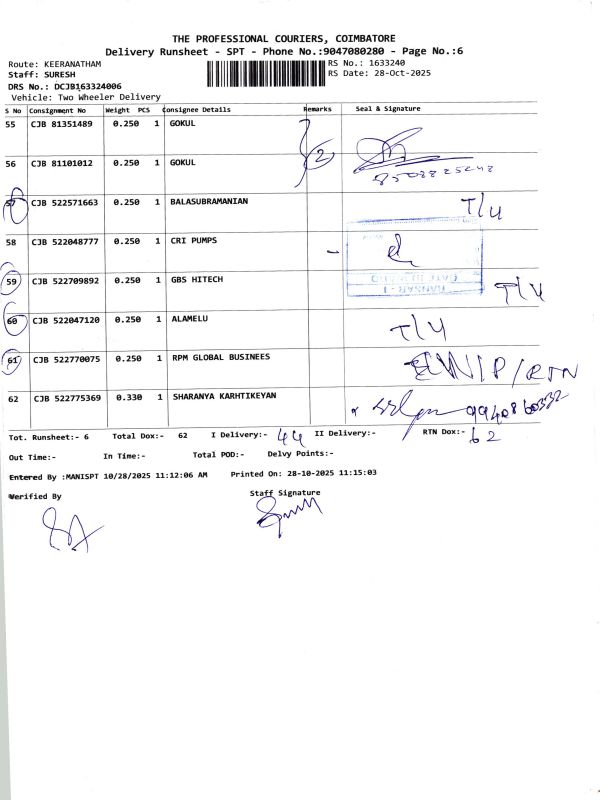 THE PROFESSIONAL COURIERS, COIMBATORE
Delivery Runsheet - SPT - Phone No.:9047080280 - Page No.:6
Route: KEERANATHAM
RS No.: 1633240
Staff: SURESH
RS Date: 28-Oct-2025
DRS No.: DCJB163324006
Vehicle: Two Wheeler Delivery
S No Consignment No Weight PCS Consignee Details Remarks Seal & Signature
55 CJB 81351489 0.250 1 GOKUL
2
56 CJB 81101012 0.250 1 GOKUL
57 CJB 522571663 0.250 1 BALASUBRAMANIAN T/4
58 CJB 522048777 0.250 1 CRI PUMPS -
59 CJB 522709892 0.250 1 GBS HITECH T/4
60 CJB 522047120 0.250 1 ALAMELU T/4
61 CJB 522770075 0.250 1 RPM GLOBAL BUSINEES /P/RTN
62 CJB 522775369 0.330 1 SHARANYA KARHTIKEYAN 9940860332
Tot. Runsheet:- 6 Total Dox:- 62 I Delivery:- 44 II Delivery:- RTN Dox:- 62
Out Time:- In Time:- Total POD:- Delvy Points:-
Entered By :MANISPT 10/28/2025 11:12:06 AM Printed On: 28-10-2025 11:15:03
Verified By Staff Signature